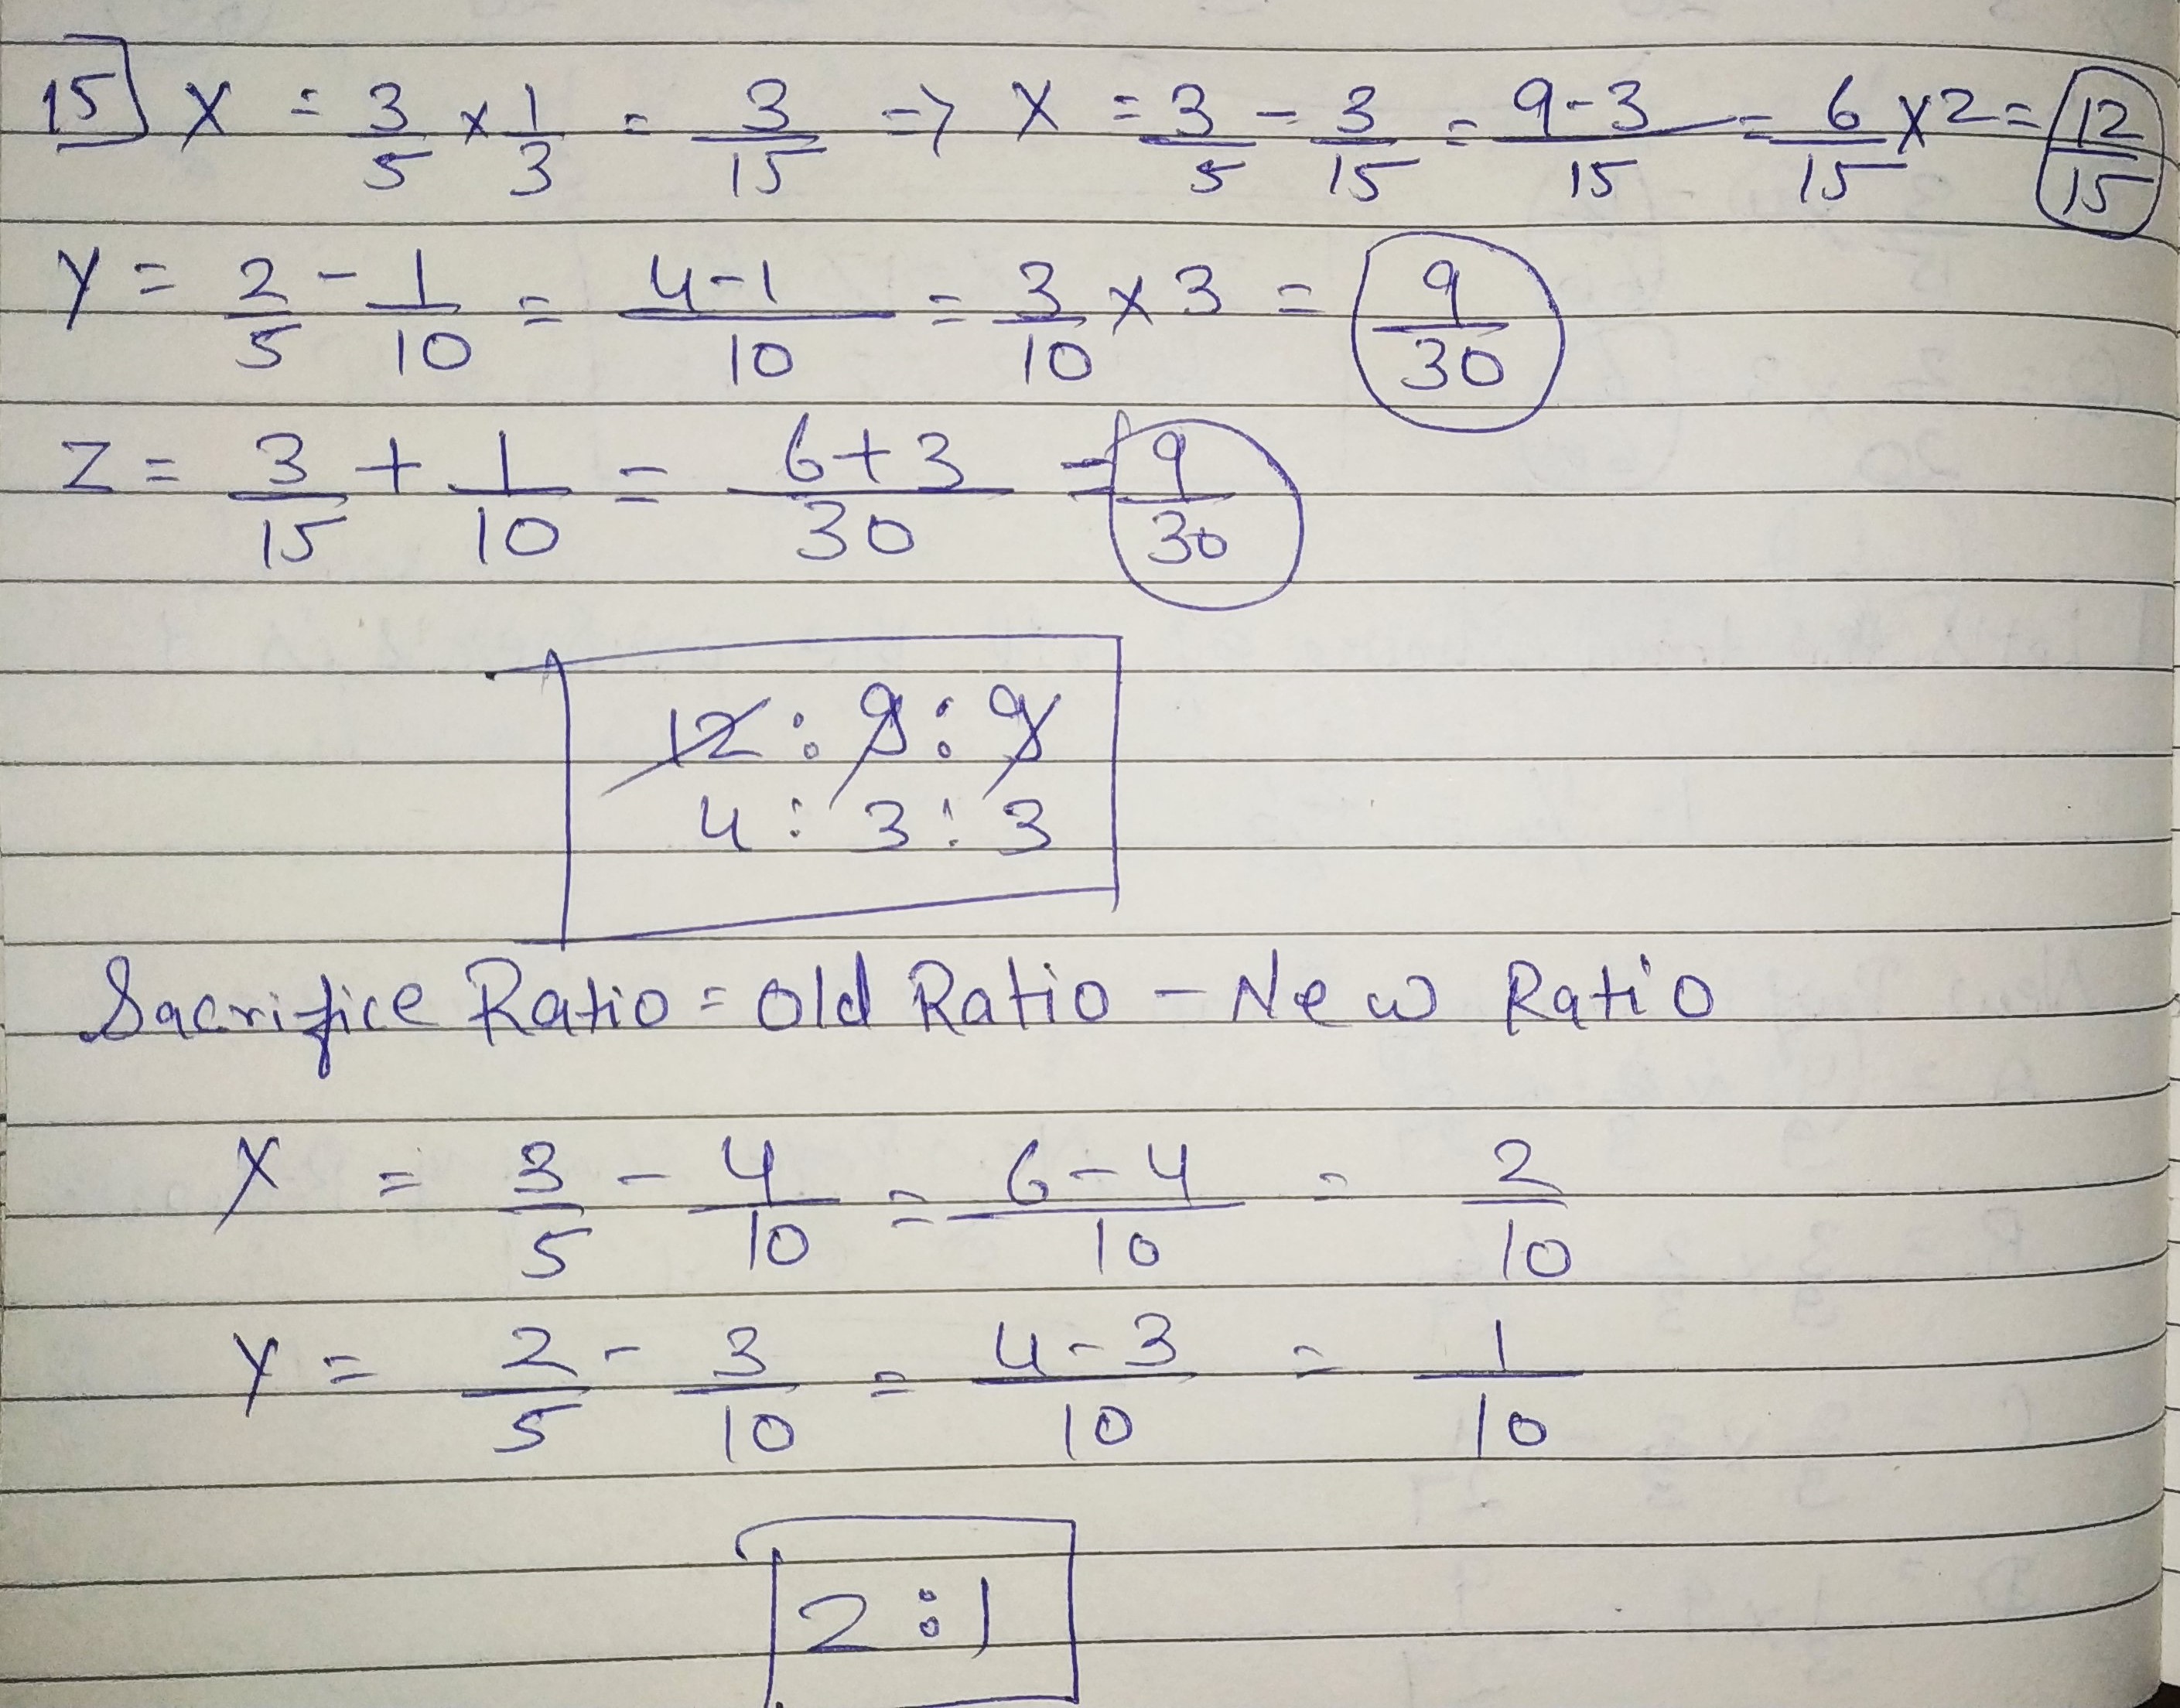 15] X = 3/5 × 1/3 = 3/15 => X = 3/5 - 3/15 = 9-3/15 = 6/15 X2 = 12/15
Y = 2/5 - 1/10 = 4-1/10 = 3/10 × 3 = 9/30
Z = 3/15 + 1/10 = 6+3/30 = 9/30
12 : 9 : 9
4 : 3 : 3
Sacrifice Ratio = Old Ratio - New Ratio
X = 3/5 - 4/10 = 6-4/10 = 2/10
Y = 2/5 - 3/10 = 4-3/10 = 1/10
2:1